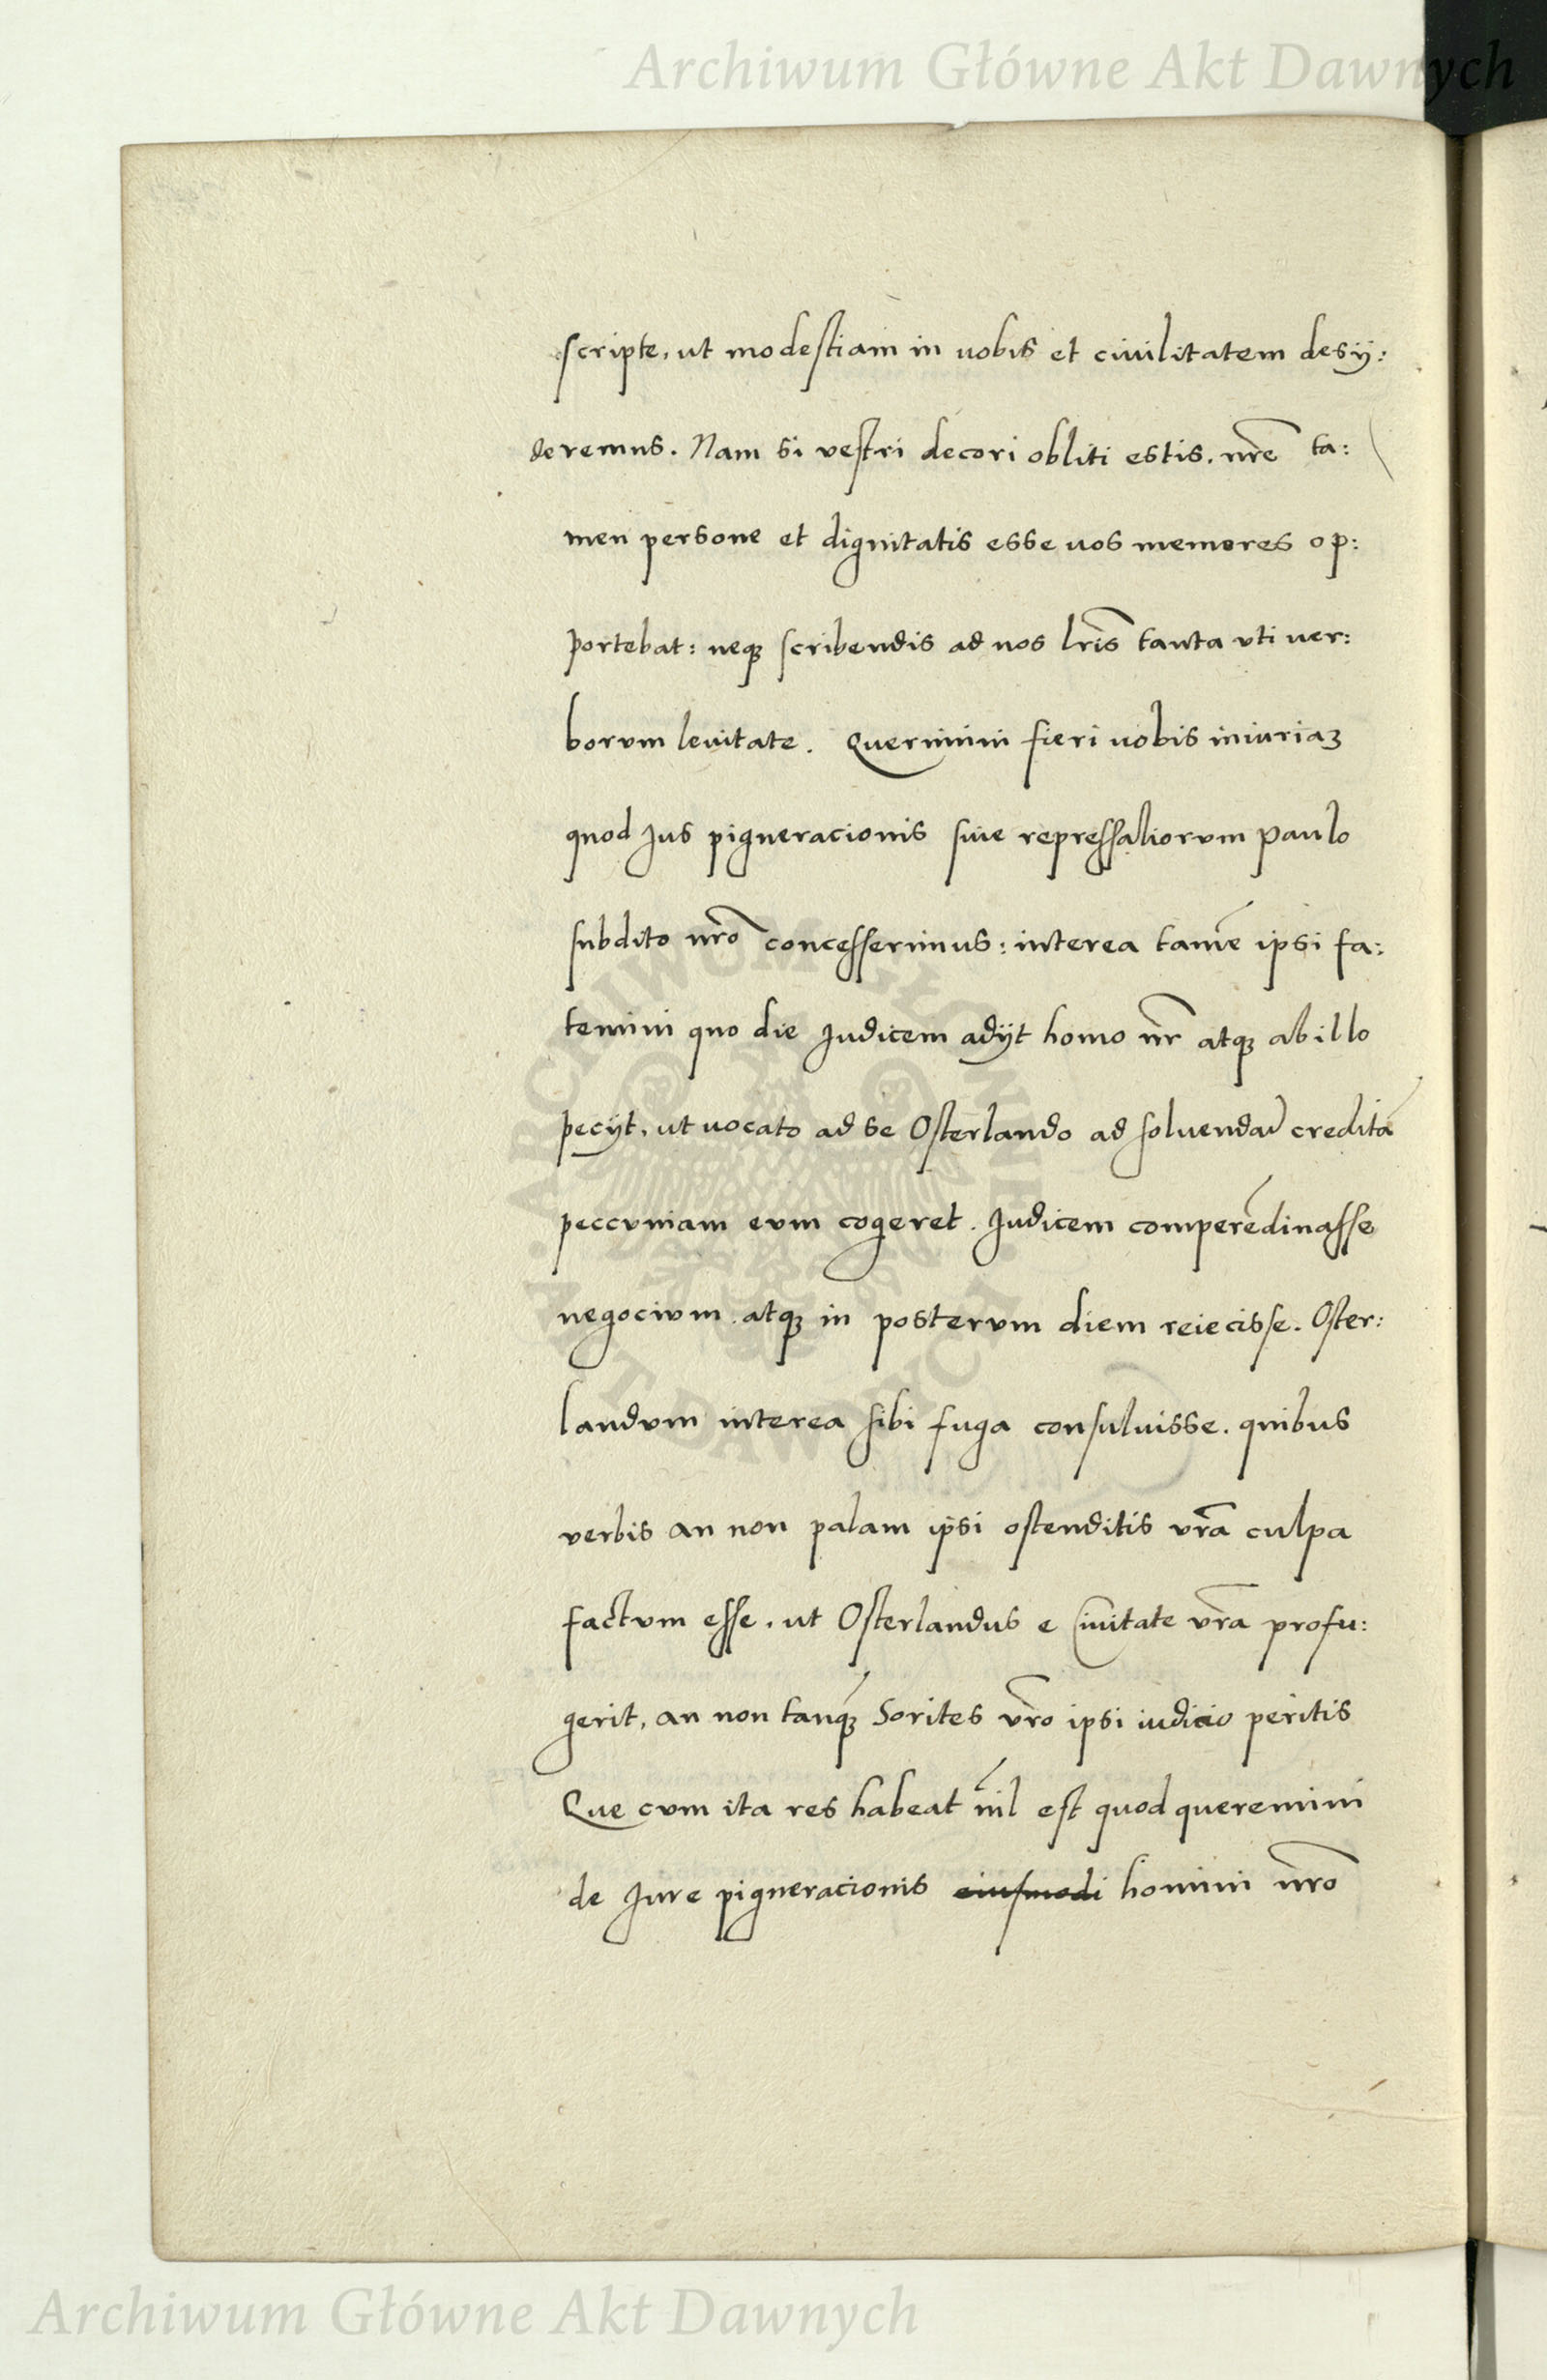 Archiwum Główne Akt Dawnych
scripte, ut modestiam in uobis et ciuilitatem desy:
deremus. Nam si vestri decori obliti estis. nr̃e ta:
men persone et dignitatis esse uos memores op:
portebat: neqꝫ scribendis ad nos lr̃is tanta vti uer:
borvm leuitate. Querimini fieri uobis iniuriaꝫ
quod Jus pigneracionis siue repressaliorvm Paulo
subdito nr̃o concesserimus: interea tamẽ ipsi fa:
temini quo die Judicem adijt homo nr̃ atqꝫ ab illo
pecijt, ut uocato ad se Osterlando ad soluendã creditã
peccvniam evm cogeret. Judicem comperẽdinasse
negocivm atqꝫ in postervm diem reiecisse. Oster:
landvm interea sibi fuga consuluisse. quibus
verbis an non palam ipsi ostenditis vr̃a culpa
factvm esse, ut Osterlandus e Ciuitate vr̃a profu:
gerit, an non tanqꝫ Sorites vr̃o ipsi iudicio peritis
Que cvm ita res habeat nĩl est quod queremini
de Jure pigneracionis eiusmodi homini nr̃o
ARCHIWUM GŁÓWNE AKT DAWNYCH
Archiwum Główne Akt Dawnych